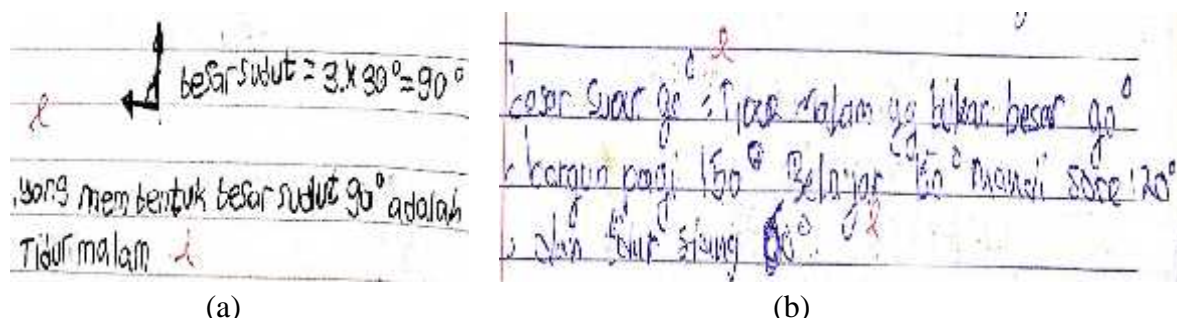 besar sudut = 3 x 30° = 90°
yang membentuk besar sudut 90° adalah
Tidur malam
besar sudut 90° : Tidur malam yg bukan besar 90°
bangun pagi 150° Belajar 60° mandi sore 120°
dan tidur siang 60°
(a)
(b)